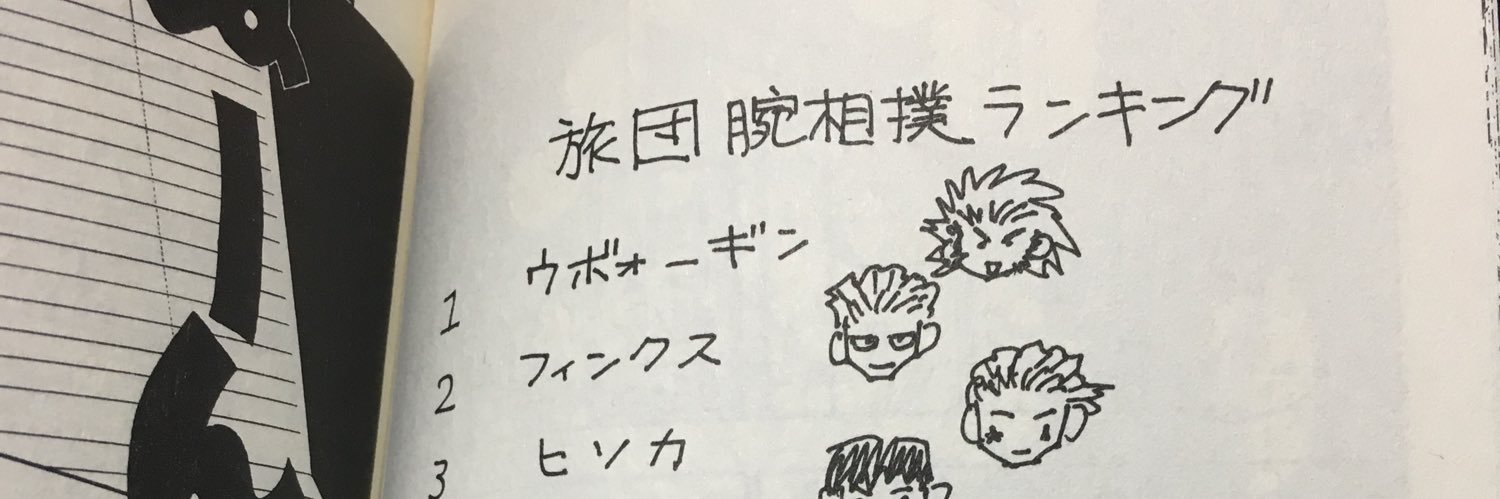 旅団腕相撲ランキング
1 ウボォーギン
2 フィンクス
3 ヒソカ